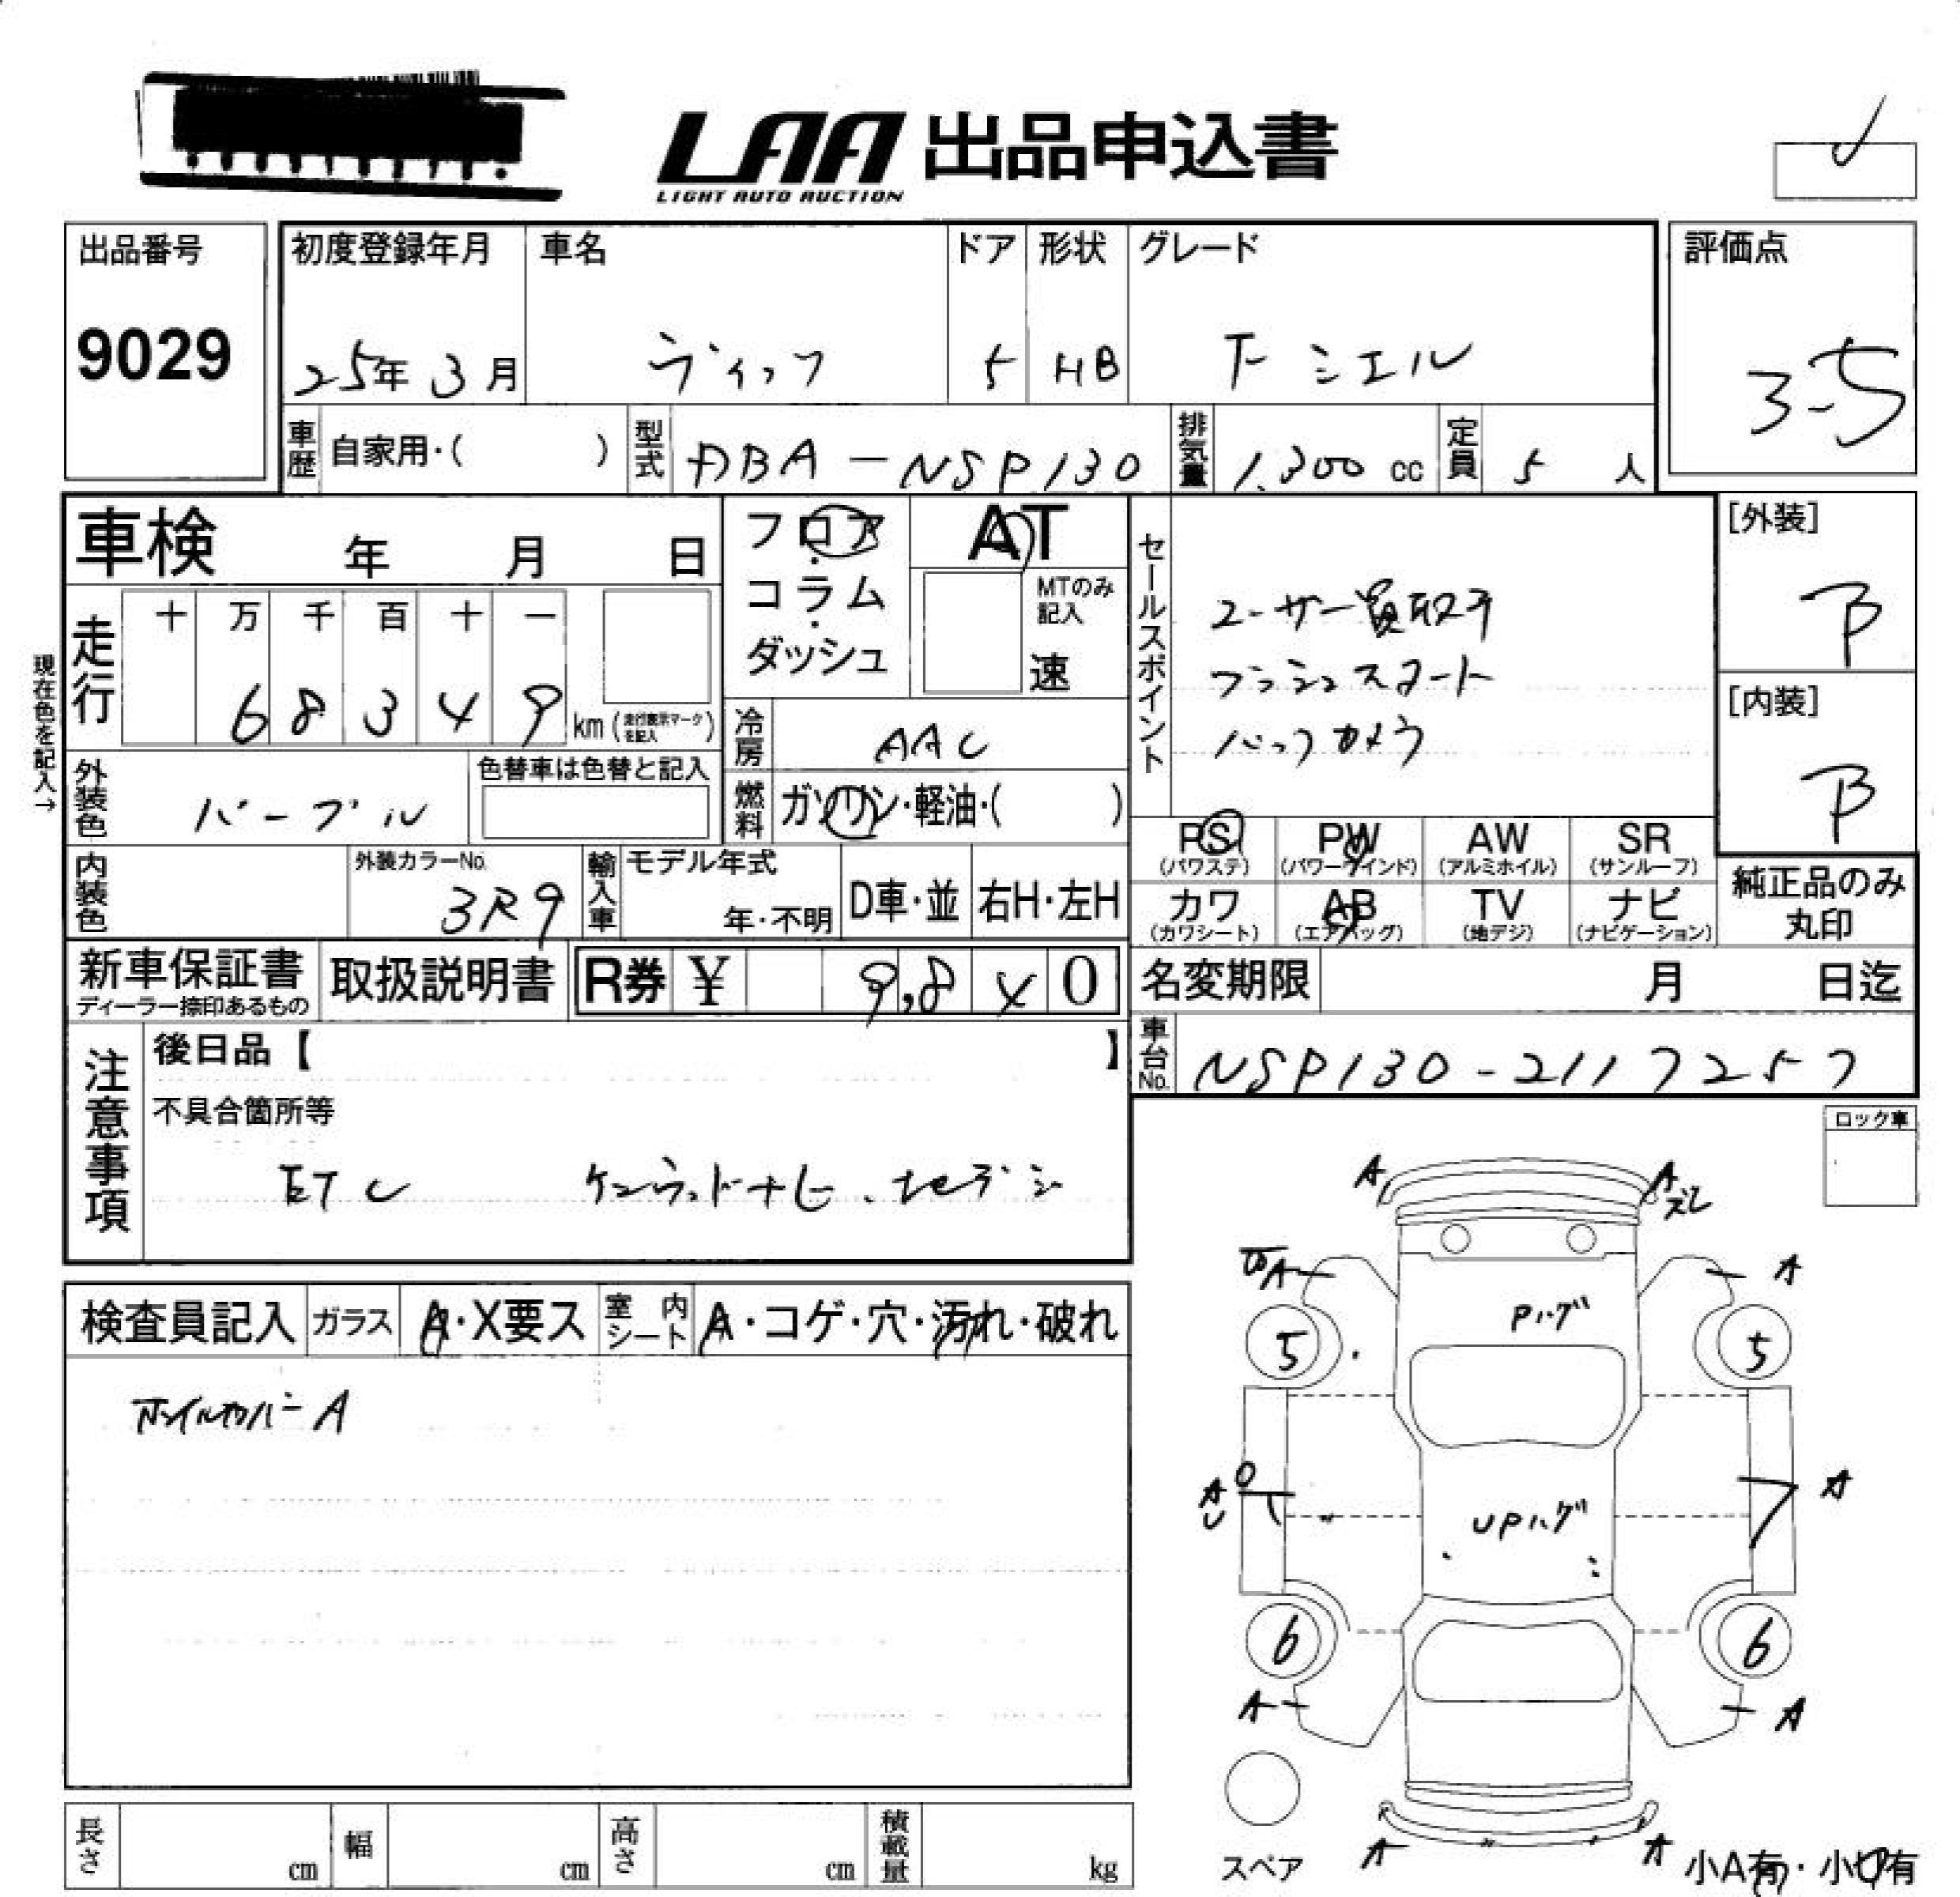 LAA 出品申込書
LIGHT AUTO AUCTION
出品番号
9029
初度登録年月
25年 3月
車名
ヴィッツ
ドア
5
形状
HB
グレード
F シエル
評価点
3.5
車歴
自家用・( )
型式
DBA-NSP130
排気量
1,300 cc
定員
5 人
車検 年 月 日
フロア
・
コラム
・
ダッシュ
AT
MTのみ
記入
速
セールスポイント
ユーザー買取車
プッシュスタート
バックカメラ
[外装]
B
[内装]
B
現在色を記入→
走行
十 万 千 百 十 一
6 8 3 4 9 km (走行表示マークを記入)
冷房
AAC
外装色
パープル
色替車は色替と記入
燃料
ガソリン・軽油・( )
PS
(パワステ)
PW
(パワーウインド)
AW
(アルミホイル)
SR
(サンルーフ)
内装色
外装カラーNo.
3R9
輸入車
モデル年式
年・不明
D車・並
右H・左H
カワ
(カワシート)
AB
(エアバッグ)
TV
(地デジ)
ナビ
(ナビゲーション)
純正品のみ
丸印
新車保証書
ディーラー捺印あるもの
取扱説明書
R券 ¥ 9,8 4 0
名変期限 月 日迄
車台No.
NSP130-2117257
注意事項
後日品【 】
不具合箇所等
ETC ケンウッドナビ、地デジ
ロック車
A
A
ズレ
A
A
Pハゲ
5
5
A
A
UPハゲ
6
6
A
A
A
A
スペア
小A有・小U有
検査員記入
ガラス
A・X要ス
室内シート
A・コゲ・穴・汚れ・破れ
ホイルカバー A
長さ cm
幅 cm
高さ cm
積載量 kg